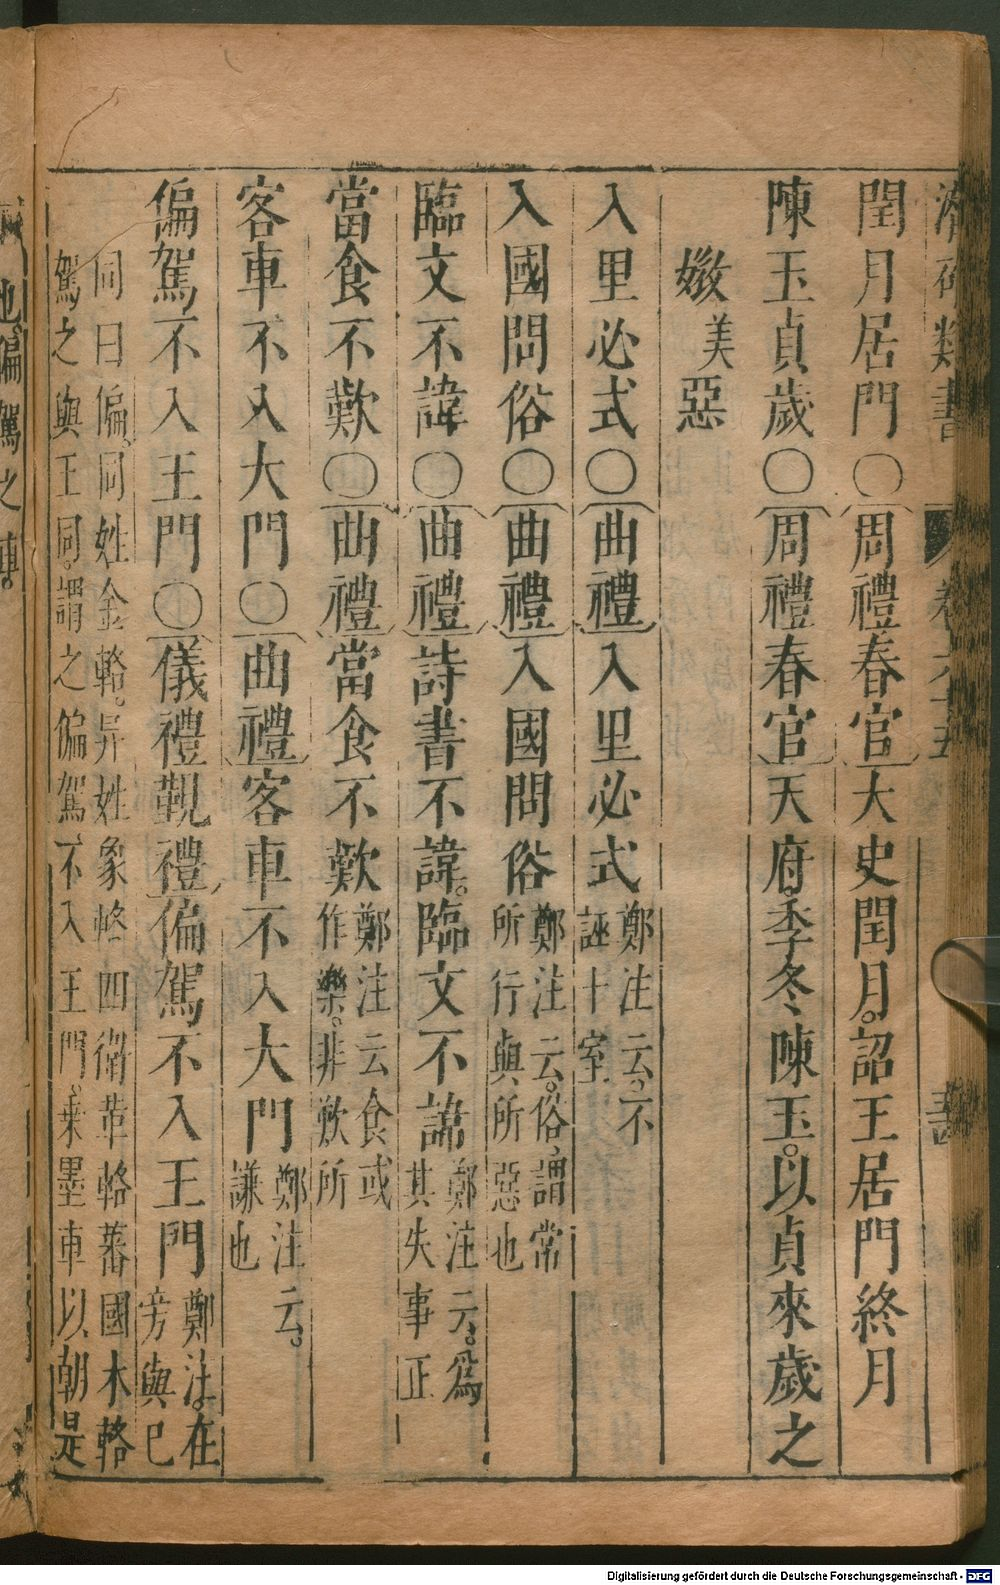 類書 卷六十五
閏月居門〇周禮春官大史閏月。詔王居門終月
陳玉貞歲〇周禮春官天府。季冬陳玉。以貞來歲之
媺美惡
入里必式〇曲禮入里必式鄭注云。不
誣十室
入國問俗〇曲禮入國問俗鄭注云。俗謂常
所行與所惡也
臨文不諱〇曲禮詩書不諱。臨文不諱鄭注云。爲
其失事正
當食不歎〇曲禮當食不歎鄭注云食或
作樂。非歎所
客車不入大門〇曲禮客車不入大門鄭注云。
謙也
偏駕不入王門〇儀禮覲禮偏駕不入王門鄭注。在
旁與已
同曰偏。同姓金輅。异姓象輅四衛革輅蕃國木輅
駕之與王同。謂之偏駕、不入王門。乗墨車以朝是
也偏駕之車。
Digitalisierung gefördert durch die Deutsche Forschungsgemeinschaft - DFG